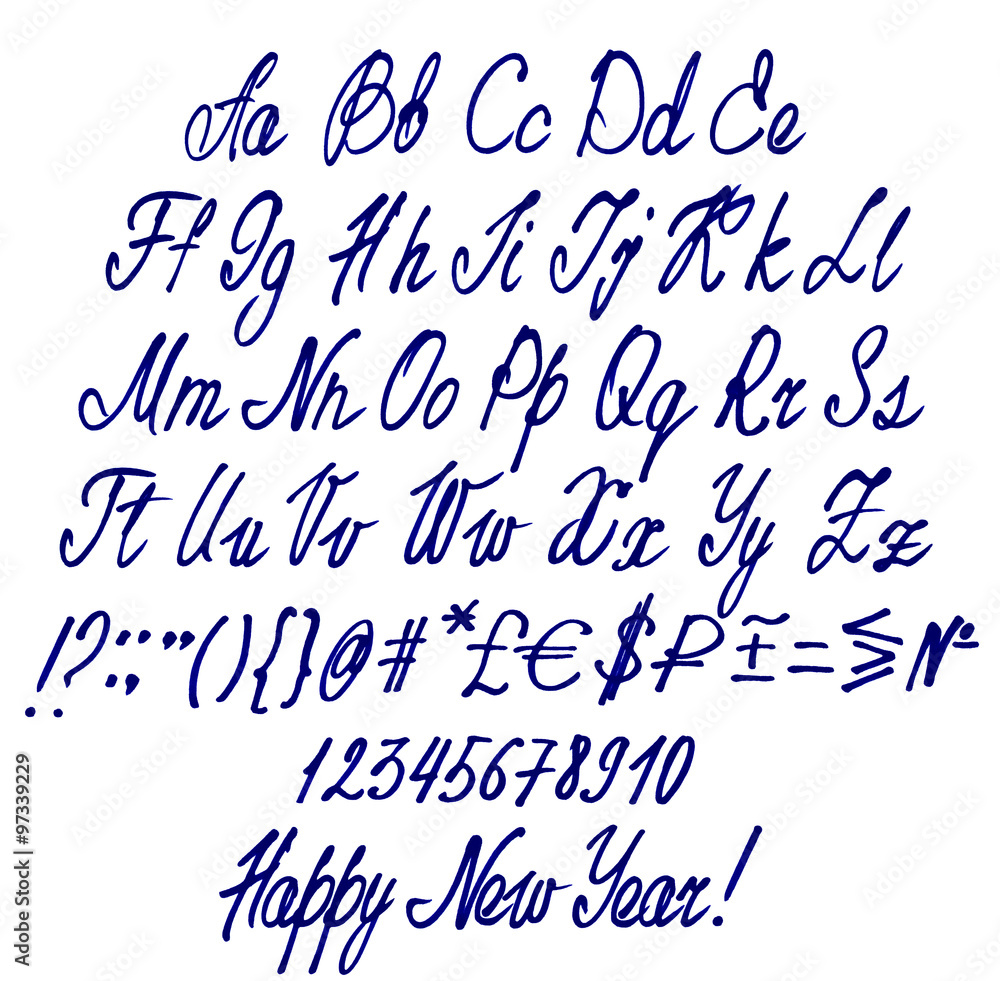 Aa Bb Cc Dd Ee
Ff Gg Hh Ii Jj Kk Ll
Mm Nn Oo Pp Qq Rr Ss
Tt Uu Vv Ww Xx Yy Zz
!?:;"(){}@#*£€$₽±~=≶№
12345678910
Happy New Year!
Adobe Stock | #97339229